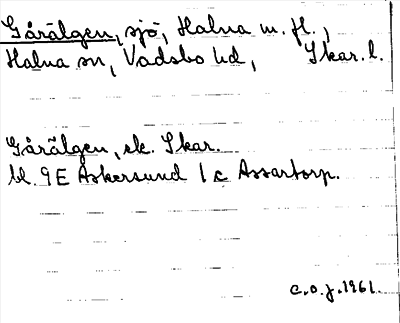 Gårälgen, sjö, Halna m. fl.,
Halna sn, Vadsbo hd, Skar. l.
Gårälgen, ek. Skar.
bl. 9E Askersund 1c Assartorp.
c.o.j. 1961.